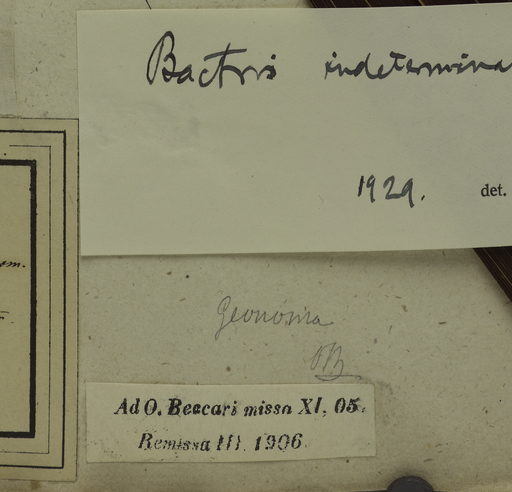 Bactris indetermina
1929.
det.
Geonoma
OB
Ad O. Beccari missa XI, 05.
Remissa III. 1906.